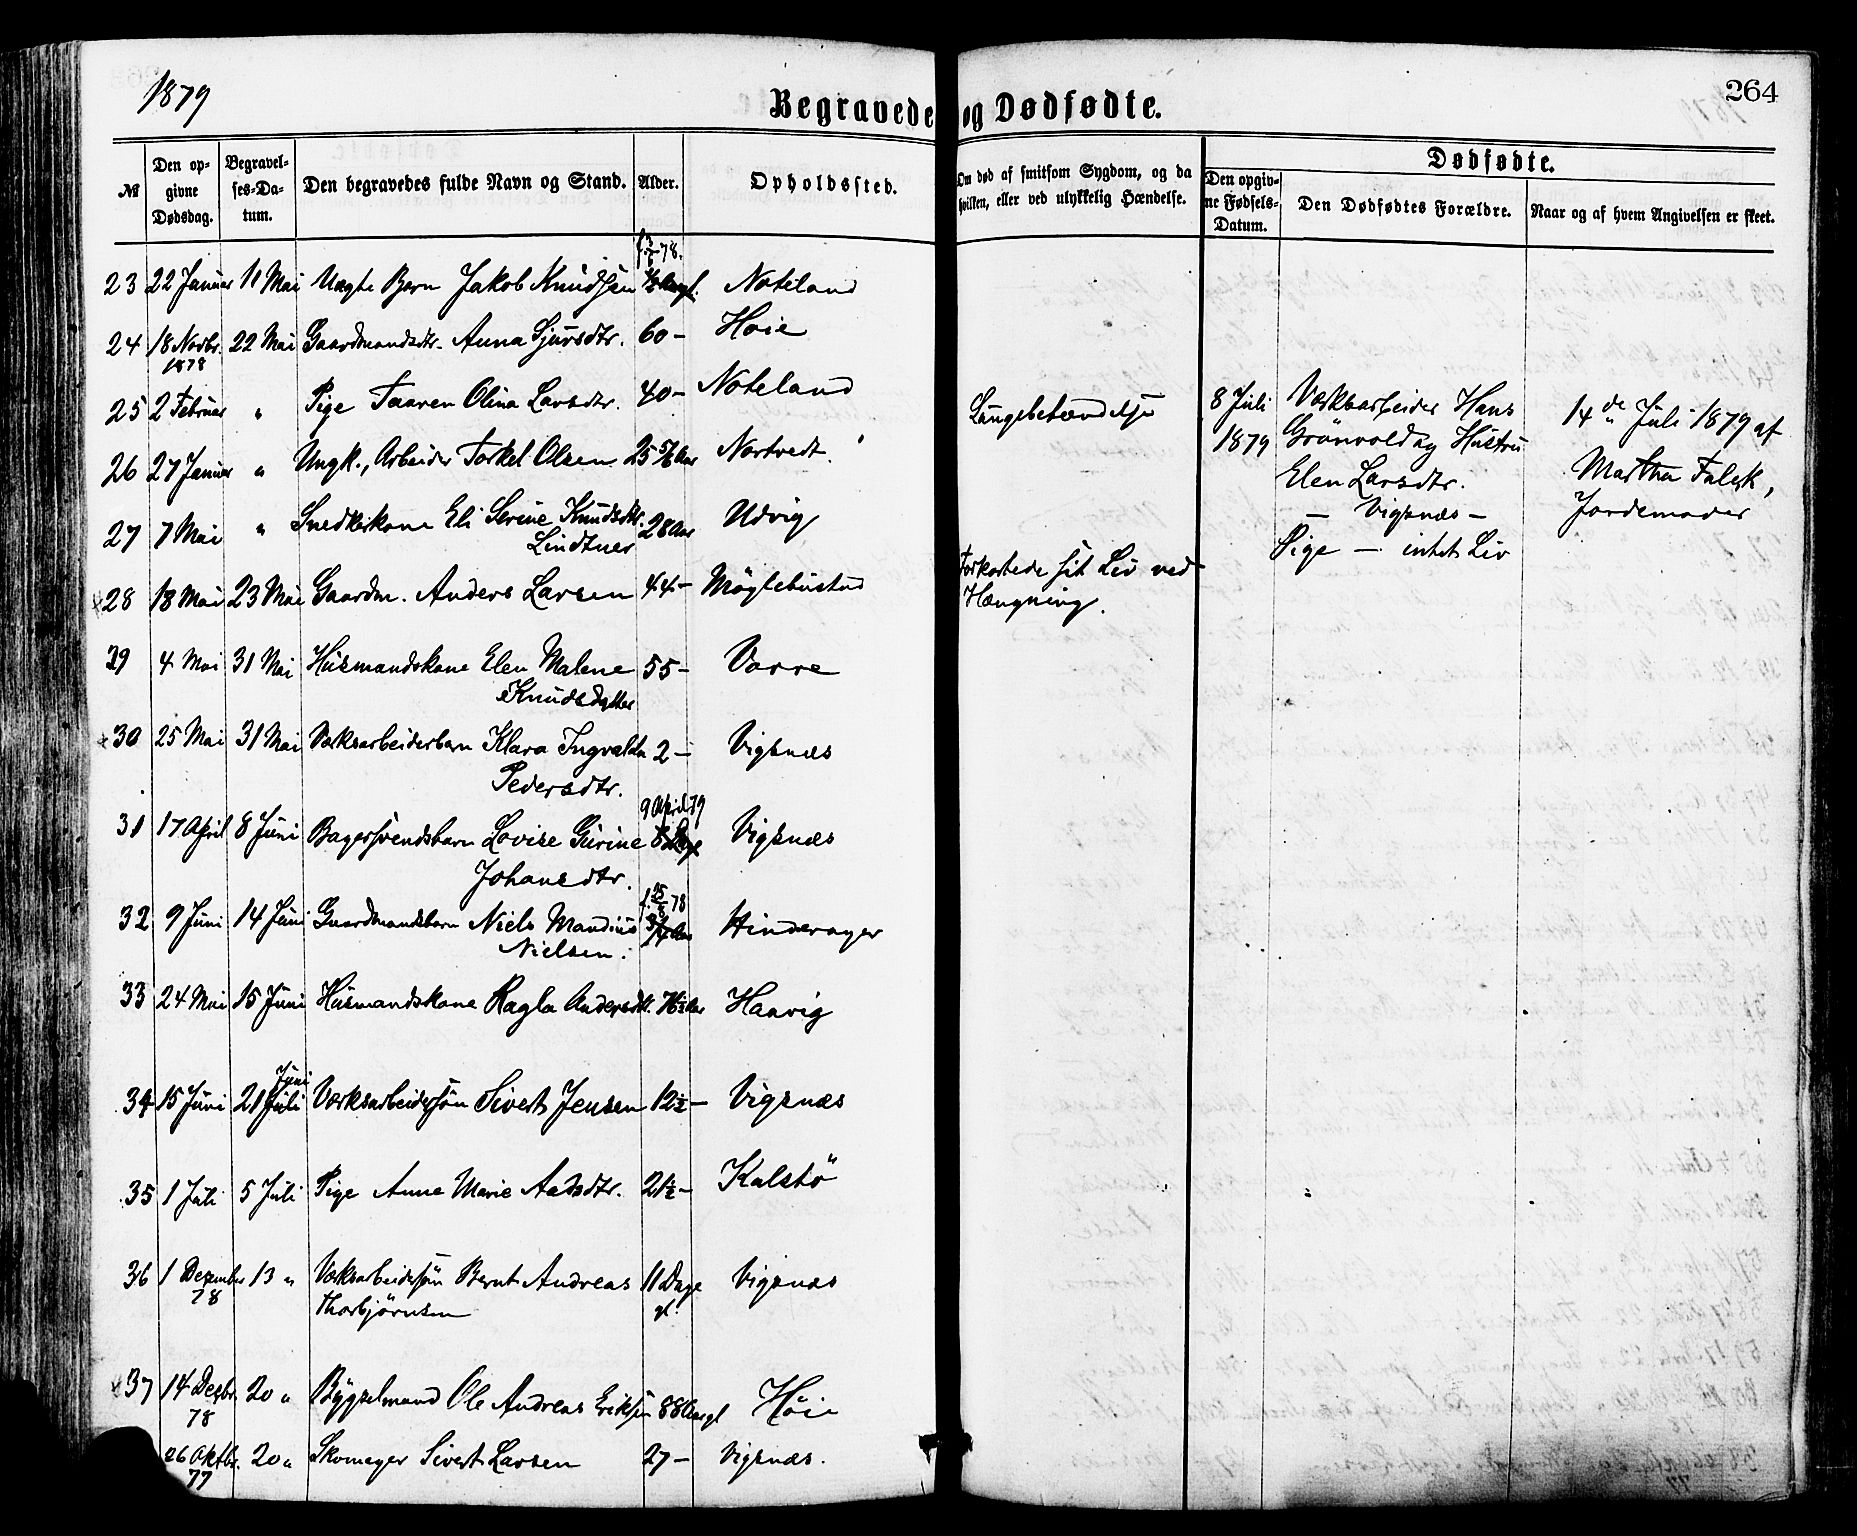 1879
Begravede og Dødfødte.
264
№
Den opgivne Dødsdag.
Begravelses-Datum.
Den begravedes fulde Navn og Stand.
Alder.
Opholdssted.
Om død af smitsom Sygdom, og da hvilken, eller ved ulykkelig Hændelse.
Dødfødte.
Den opgivne Fødsels-Datum.
Den Dødfødtes Forældre.
Naar og af hvem Angivelsen er skeet.
23 22 Januar 11 Mai Uægte Barn Jakob Knudsen Noteland
24 18 Novbr. 1878 22 Mai Gaardmandsdtr. Anna Sjursdtr. 60 – Høie
25 2 Februar " Pige Taaren Olina Larsdtr. 40 – Noteland Lungebetændelse
26 27 Januar " Ungk., Arbeider Torkel Olsen 25 5/6 Aar Nortvedt
27 7 Mai " Snedkerkone Eli Serine Knudsdtr. 28 Aar Udvig
Lindtner
28 18 Mai 23 Mai Gaardm. Anders Larsen 44 – Møglebustad Forkortede sit Liv ved
Hængning.
29 4 Mai 31 Mai Husmandskone Elen Malene 55 – Vorre
Knudsdatter
30 25 Mai 31 Mai Værksarbeiderbarn Klara Ingvalda 2 – Vigsnæs
Pedersdtr.
9 April 79
31 17 April 8 Juni Bagersvendsbarn Lovise Gurine 8 Dage Vigsnæs
Johansdtr.
32 9 Juni 14 Juni Gaardmandsbarn Niels Mandius 3/4 Aar Hinderager
Nielsen.
33 24 Mai 15 Juni Husmandskone Ragla Andersdtr. 76½ Aar Haavig
Juni
34 15 Juni 21 Juli Værksarbeidersøn Sivert Jensen 12½ – Vigsnæs
35 1 Juli 5 Juli Pige Anne Marie Aadsdtr. 21½ – Kalstø
36 1 Dezember 78 13 " Værksarbeidersøn Bernt Andreas 11 Dage gl. Vigsnæs
Thorbjørnsen
37 14 Dezbr. 78 20 " Bygselmand Ole Andreas Eriksen 88 Aar gl Høie
26 Oktbr. 77 20 " Skomager Sivert Larsen 27 – Vigsnæs.
8 Juli
1879
Værksarbeider Hans
Grønvold og Hustru
Elen Larsdtr.
– Vigsnæs –
Pige – intet Liv
14de Juli 1879 af
Martha Falck,
Jordemoder